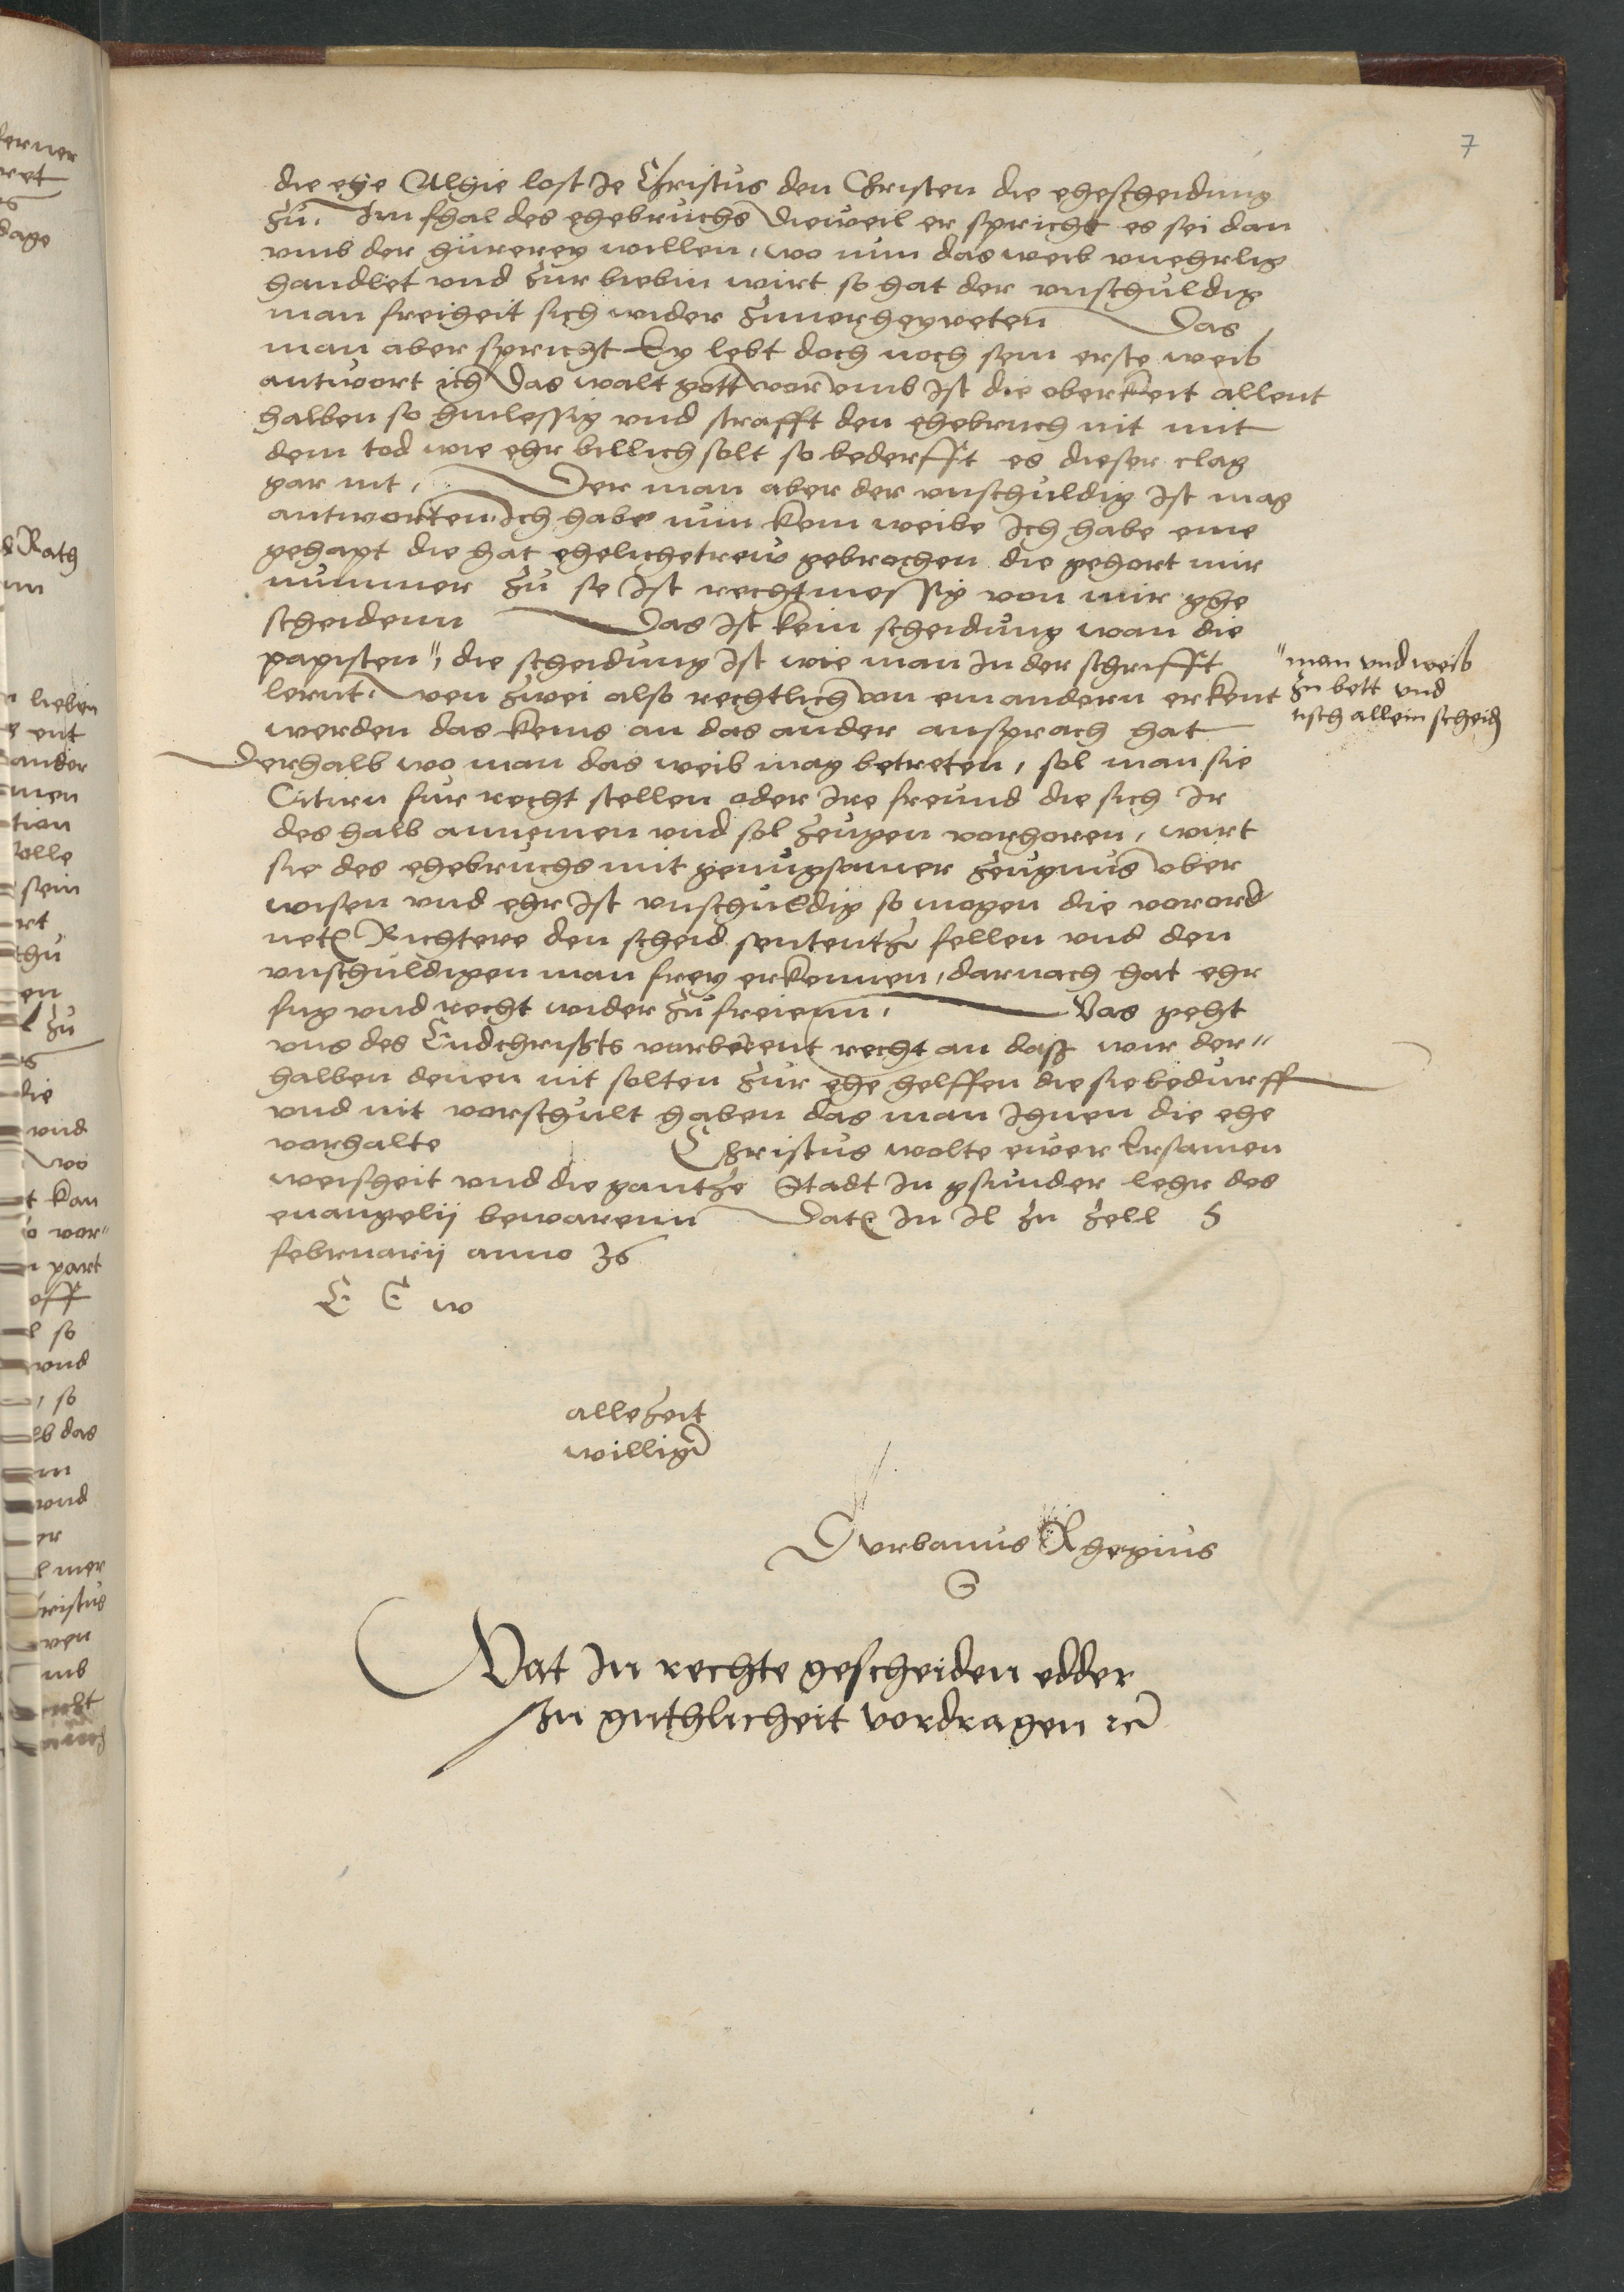 7
die ehe Alhie lost Je Christus den Christen die ehescheidung
zu. Im fhal des ehebruchs dieweil er spricht es sei dan
vmb der hurerey willen, wo nun das weib vnehrlig
handlet vnd zur biebin wirt so hat der vnschuldig
man freiheit sich wider zuuorheyreten Das
man aber spricht Ey lebt doch noch sein erste weib
antwort ich das walt gott worvmb ist die oberkeit allent
halben so hinlessig vnd strafft den ehebruch nit mit
dem tod wie ehr billich solt so bederfft es dieser clag
gar nit, Der man aber der vnschuldig ist mag
antworten. Ich habe nun kein weibe Ich habe eine
gehapt die hat eheliche trew gebrochen die gehort mir
nummer zu se ist rechtmessig von mir ghe
scheidenn Das ist kein scheidung wan die
papisten", die scheidung ist wie man in der schrifft
"man vnd weib
zu bett vnd
tisch allein scheid
lernt. wen zwei also rechtlich von einandern erkent
werden das keins an das ander ansprach hat
Derhalb wo man das weib mag betreten, sol man sie
Citirn fur recht stellen oder Ire freund die sich Ir
deshalb annemen vnd sol zeugen vorhoren, wirt
sie des ehebruchs mit genugsamer zeugnus vber
wisen vnd ehr ist vnschuldig so mogen die vorord
nete Richtere den scheid sententz fellen vnd den
vnschuldigen man frey erkennen, darnach hat ehr
fug vnd recht wider zu freienn. Was geht
vns des Endchrists vorbeient recht an daß wir der"
halben denen nit solten zur ehe helffen die sie bedurff
vnd nit vorschult haben das man Ihnen die ehe
vorhalte Christus wolte ewer Ersamen
weisheit vnd die gantze Stadt in gsunder lehr des
euangelij bewarenn Datum In Il zu zell 5
februarij anno 36
E E w
allezeit
williger
D vrbanus Rhegius
Wat In rechte gescheiden edder
In guthlicheit vordragen etc